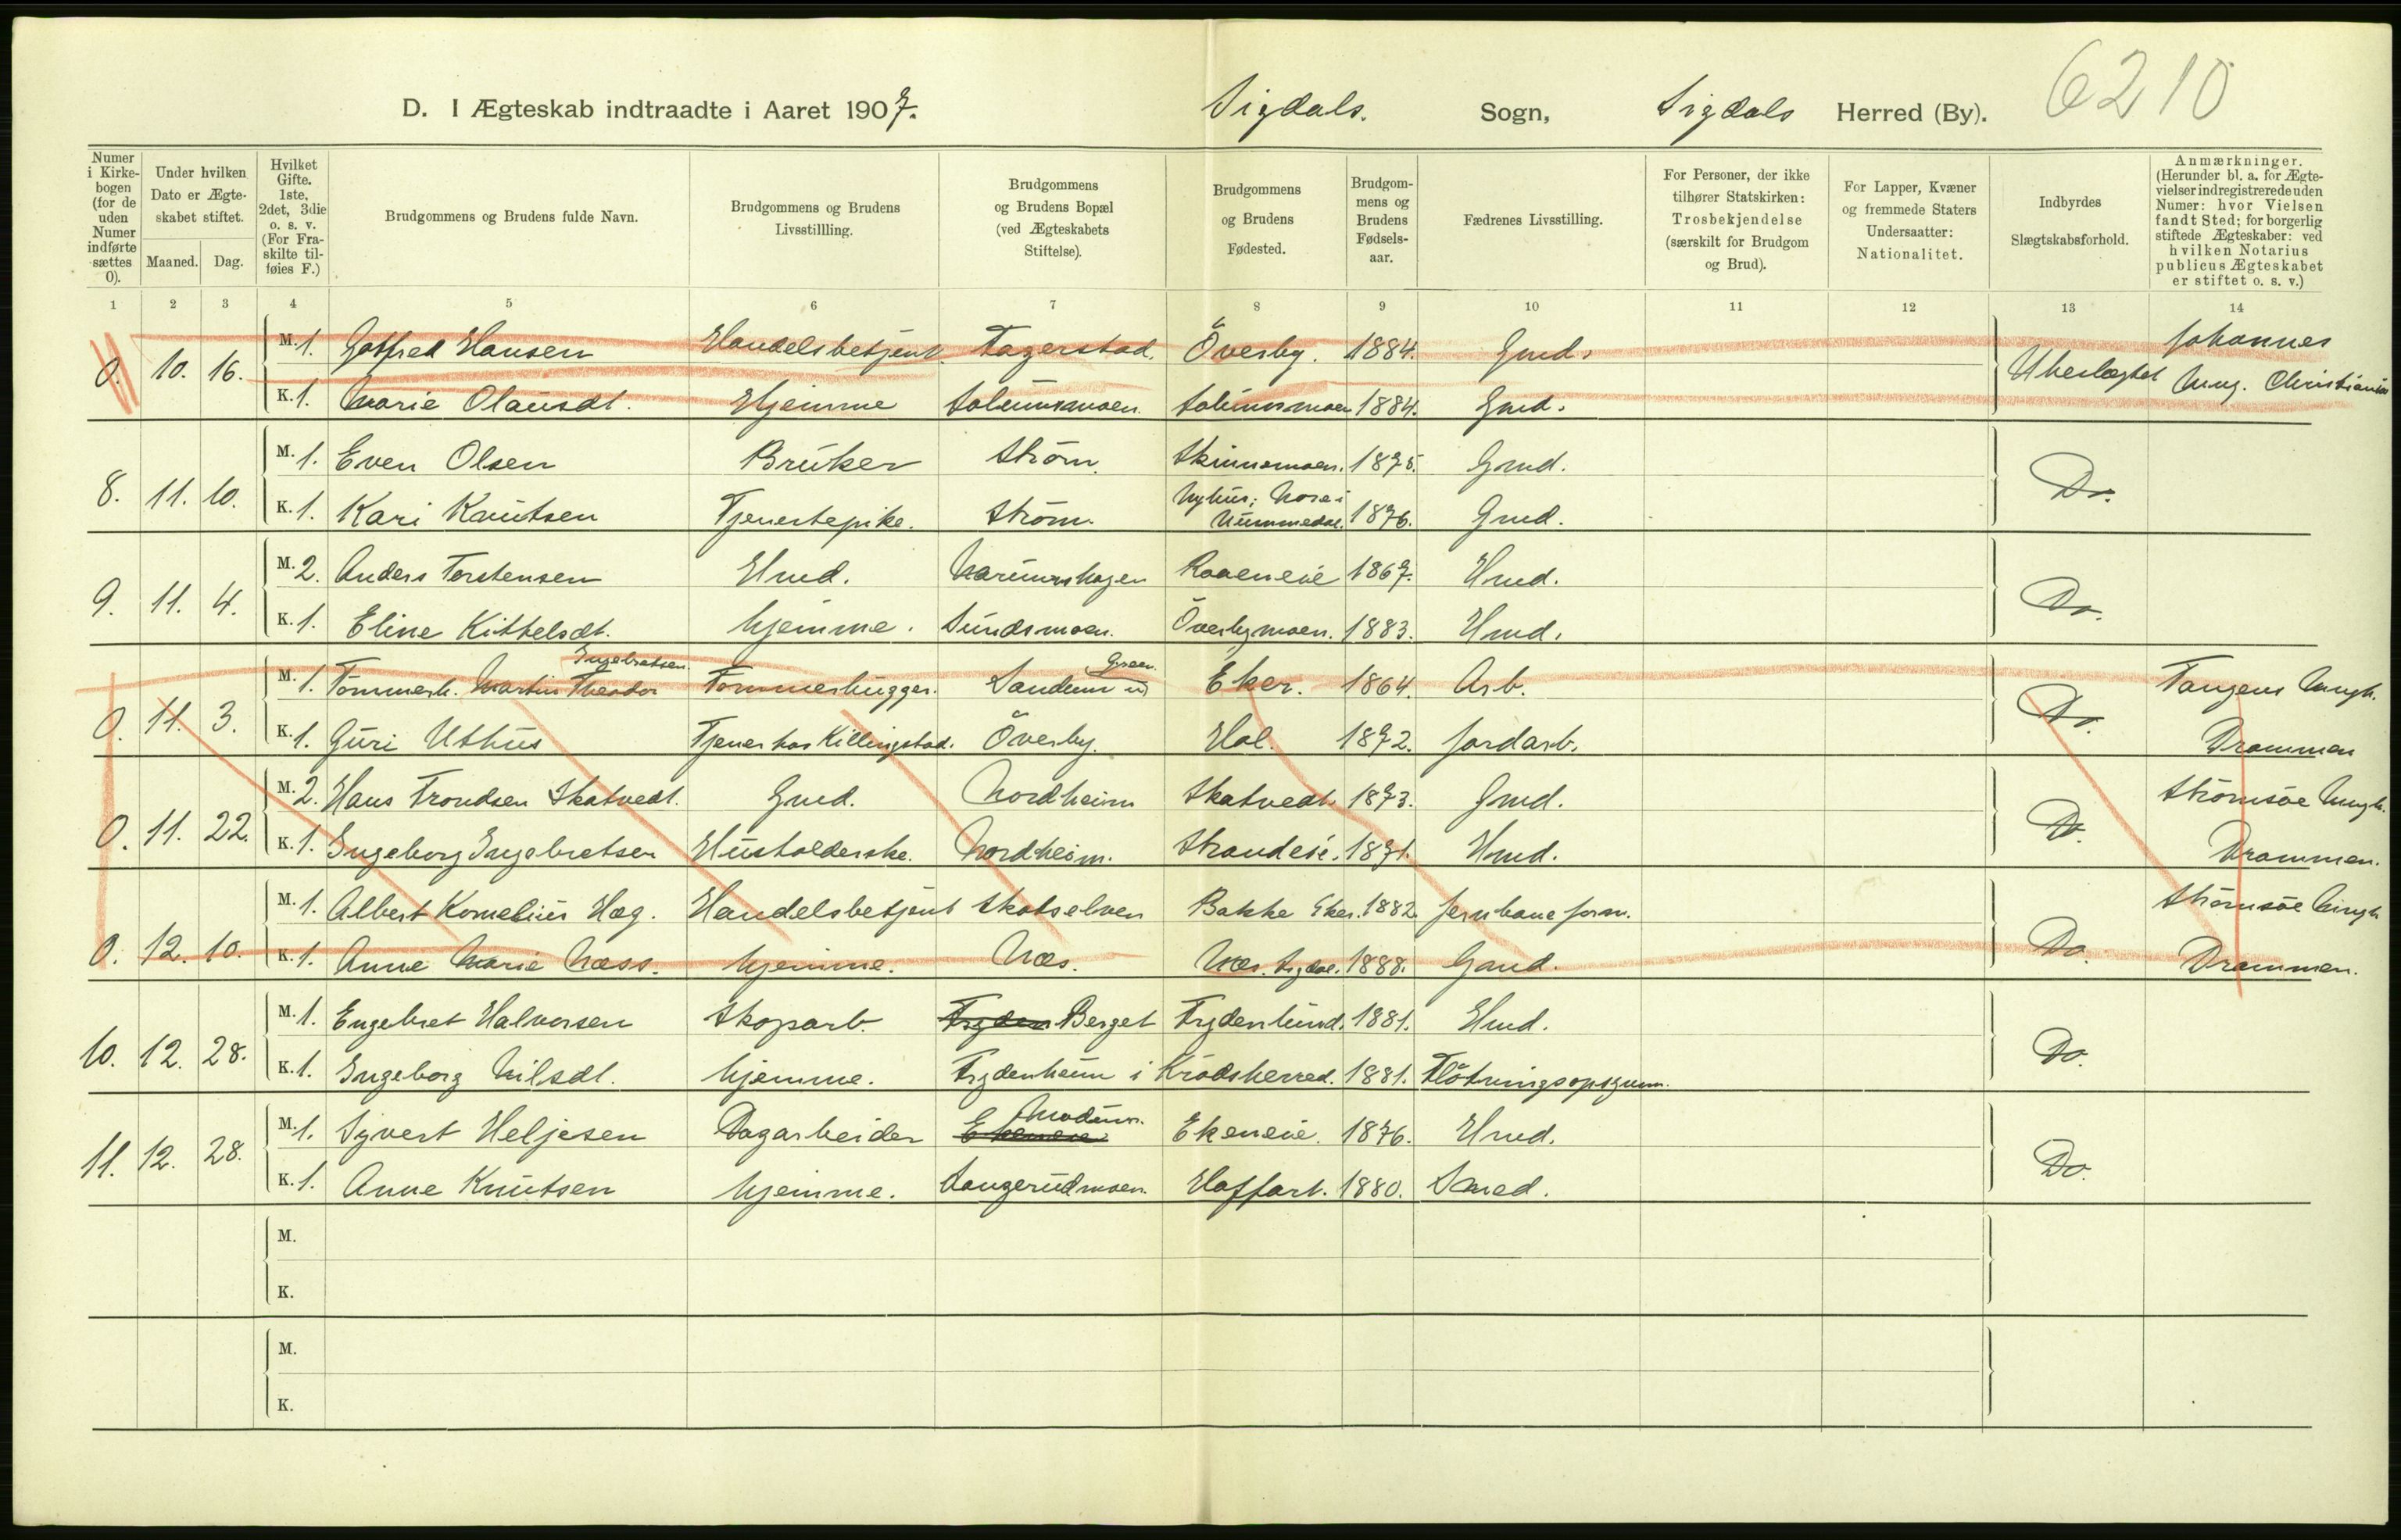 6210
D. I Ægteskab indtraadte i Aaret 1907. Sigdals. Sogn, Sigdals Herred (By).
Numer i Kirkebogen (for de uden Numer indførte sættes 0).
Under hvilken Dato er Ægteskabet stiftet.
Maaned. Dag.
Hvilket Gifte. 1ste, 2det, 3die o. s. v. (For Fraskilte tilføies F.)
Brudgommens og Brudens fulde Navn.
Brudgommens og Brudens Livsstillling.
Brudgommens og Brudens Bopæl (ved Ægteskabets Stiftelse).
Brudgommens og Brudens Fødested.
Brudgommens og Brudens Fødselsaar.
Fædrenes Livsstilling.
For Personer, der ikke tilhører Statskirken: Trosbekjendelse (særskilt for Brudgom og Brud).
For Lapper, Kvæner og fremmede Staters Undersaatter: Nationalitet.
Indbyrdes Slægtskabsforhold.
Anmærkninger. (Herunder bl. a. for Ægtevielser indregistrerede uden Numer: hvor Vielsen fandt Sted; for borgerlig stiftede Ægteskaber: ved hvilken Notarius publicus Ægteskabet er stiftet o. s. v.)
1 2 3 4 5 6 7 8 9 10 11 12 13 14
0. 10. 16. M. 1. Gotfred Hansen Handelsbetjent Fagerstad. Överby. 1884. Gmd. Ubeslægtet Johannes
K. 1. Marie Olausdt. Hjemme 1884. Gmd. Mng. Christiania
8. 11. 10. M. 1. Even Olsen Bruker Ström. Skinnsmoen. 1875. Gmd. Do.
K. 1. Kari Knutsen Tjenestepike. Ström. Nyhus; Nore i Nummedal. 1876. Gmd.
9. 11. 4. M. 2. Anders Torstensen Hmd. Narumshagen Raaeneie 1867. Hmd. Do.
K. 1. Eline Kittelsdt. hjemme. Sundsmoen. Överbymoen. 1883. Hmd.
0. 11. 3. M. 1. Tömmerh. Martin Theodor Engebretsen Tommerhugger. Eker. 1864. Arb. Do. Tangens Mngh.
K. 1. Guri Uthus Tjener hos Killingstad. Överby. Hol. 1872. Jordarb. Drammen
0. 11. 22. M. 2. Hans Trondsen Skatvedt. Gmd. Nordheim Skatvedt. 1873. Gmd. Do. Strömsöe Mngh.
K. 1. Ingeborg Ingebretsen Husholderske. Nordheim. Strandeie. 1871. Hmd. Drammen.
0. 12. 10. M. 1. Albert Kornelius Hæg. Handelsbetjent Skotselven Bakke Eker. 1882. Jernbaneform. Do. Strömsöe Mngh
K. 1. Anne Marie Næss. hjemme. Næs. Næs. Sigdal. 1888. Gaard. Drammen.
10. 12. 28. M. 1. Engebret Halvorsen Skogarb. Fryden Berget Frydenlund. 1881. Hmd. Do.
K. 1. Ingeborg Nilsdt. hjemme. Frydenheim i Krödsherred. 1881. Flötningsopsynm.
11. 12. 28. M. 1. Syvert Heljesen Dagarbeider Ekeneie Modum. Ekeneie. 1876. Hmd. Do.
K. 1. Anne Knutsen hjemme. Langerudmoen. Haffart. 1880. Smed.
M.
K.
M.
K.